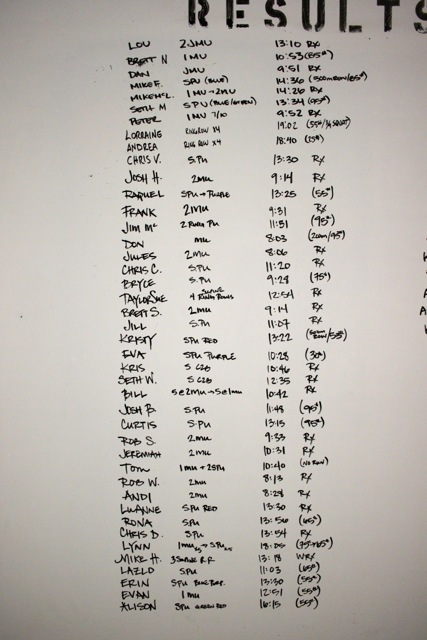 RESULTS
LOU 2JMU 13:10 RX
BRETT N 1MU 10:53 (85#)
DAN JMU 9:51 RX
MIKE F. 5PU (BLUE) 14:36 (500M ROW/85#)
MIKE MCL. 1MU→2MU 14:26 RX
SETH M 5PU (BLUE/GREEN) 13:34 (95#)
PETER 1MU 7/10 9:52 RX
LORRAINE RING ROW X4 19:02 (55#/ SQUAT)
ANDREA RING ROW X4 18:40 (25#)
CHRIS V. 5.PU 13:30 RX
JOSH H. 2MU 9:14 RX
RAQUEL 5PU→PURPLE 13:25 (55#)
FRANK 2MU 9:31 RX
JIM MC 2 RING PU 11:51 (95#)
DON MU 8:03 (200M/95#)
JULES 2MU 8:06 RX
CHRIS C. 5.PU 11:20 RX
BRYCE 5.PU 9:28 (75#)
TAYLOR SUE 4 SUPINE RING ROWS 12:54 RX
BRETT S. 2MU 9:14 RX
JILL 5.PU 11:07 RX
KRISTY 5PU RED 13:22 (500M ROW/55#)
EVA 5PU PURPLE 10:28 (30#)
KRIS 5 C2B 10:46 RX
SETH W. 5 C2B 12:35 RX
BILL 5@2MU→5@1MU 10:42 RX
JOSH B. 5.PU 11:48 (95#)
CURTIS 5.PU 13:15 (95#)
ROB S. 2MU 9:33 RX
JEREMIAH 2MU 10:31 RX
TOM 1MU + 2SPU 10:40 (NO ROW)
ROB W. 2MU 8:13 RX
ANDI 2MU 8:28 RX
LUANNE 5PU RED 13:30 RX
RONA 5.PU 13:56 (65#)
CHRIS D. 5.PU 13:54 RX
LYNN 1MU→5PU 18:05 (75→65#)
MIKE H. 3 SUPINE R.R 13:18 WRX
LAZLO 5.PU 11:03 (65#)
ERIN 5PU BLUE 13:30 (55#)
EVAN 1MU 12:51 (55#)
ALISON 3PU GREEN RED 16:15 (55#)